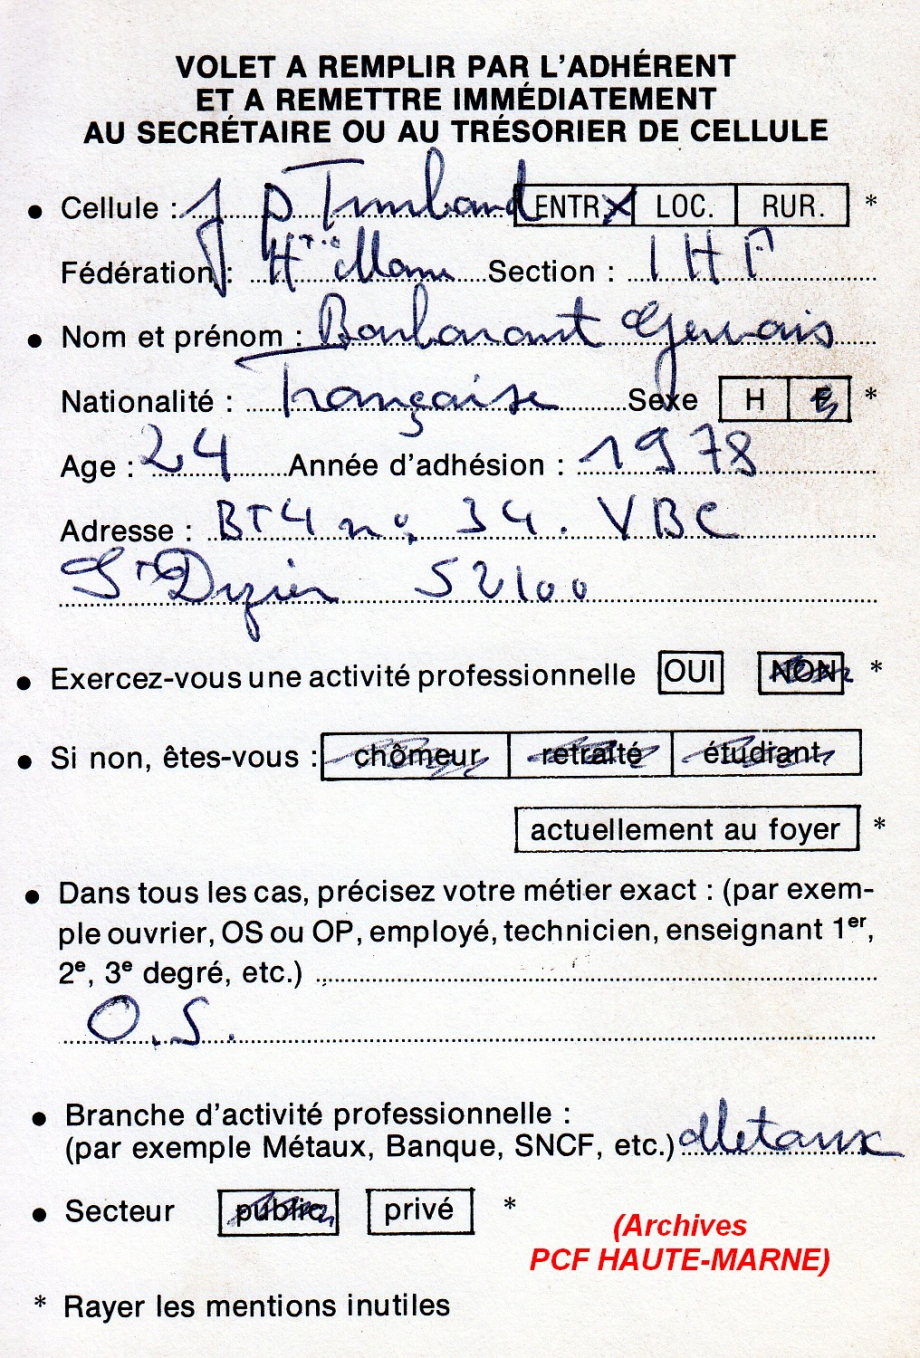 VOLET A REMPLIR PAR L'ADHÉRENT
ET A REMETTRE IMMÉDIATEMENT
AU SECRÉTAIRE OU AU TRÉSORIER DE CELLULE
● Cellule : J P Timbaud ENTR. LOC. RUR. *
Fédération : Hte Marne Section : IHF
● Nom et prénom : Barbarant Gervais
Nationalité : Française Sexe H F *
Age : 24 Année d'adhésion : 1978
Adresse : BT4 n° 34. VBC
St Dizier 52100
● Exercez-vous une activité professionnelle OUI NON *
● Si non, êtes-vous : chômeur retraité étudiant
actuellement au foyer *
● Dans tous les cas, précisez votre métier exact : (par exem-
ple ouvrier, OS ou OP, employé, technicien, enseignant 1er,
2e, 3e degré, etc.)
O.S.
● Branche d'activité professionnelle :
(par exemple Métaux, Banque, SNCF, etc.) Metaux
● Secteur public privé *
(Archives
PCF HAUTE-MARNE)
* Rayer les mentions inutiles